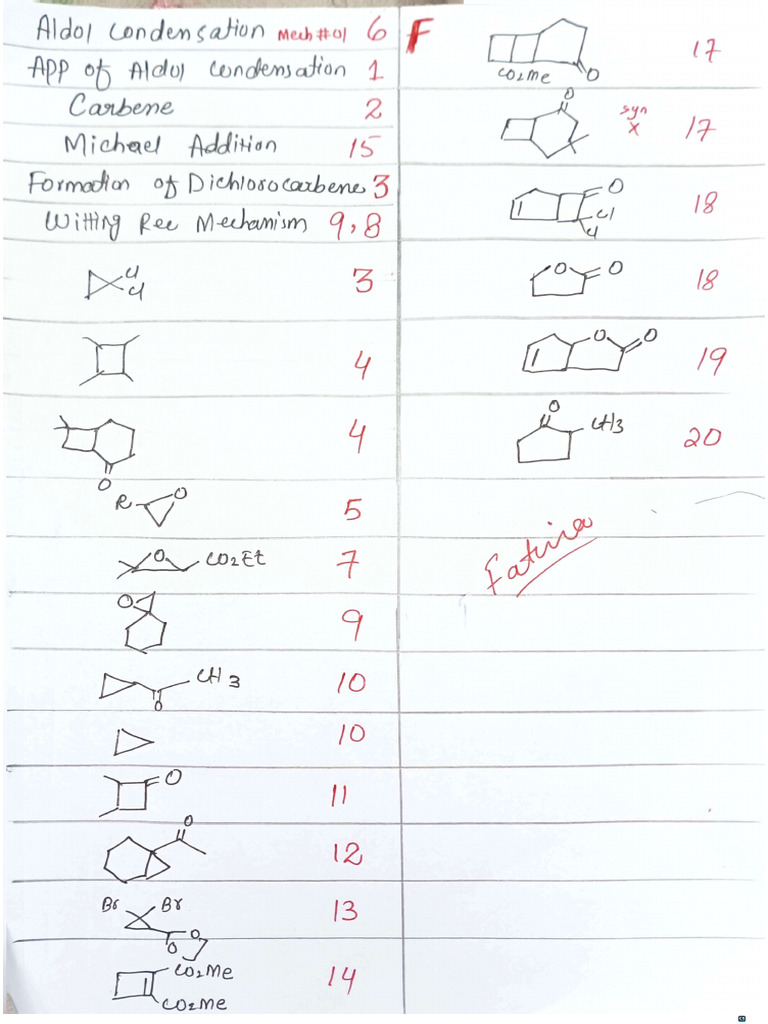 Aldol Condensation Mech #01 6
App of Aldol Condensation 1
Carbene 2
Michael Addition 15
Formation of Dichlorocarbene 3
Witting Rec Mechanism 9,8
Cl
Cl
3
4
O
4
R O
5
O CO2Et
7
O
9
CH3
O
10
10
O
11
O
12
Br Br
O
O
13
CO2Me
CO2Me
14
F
CO2Me O
17
O
syn
x
17
O
Cl
Cl
18
O O
18
O O
19
O
CH3
20
Fatima